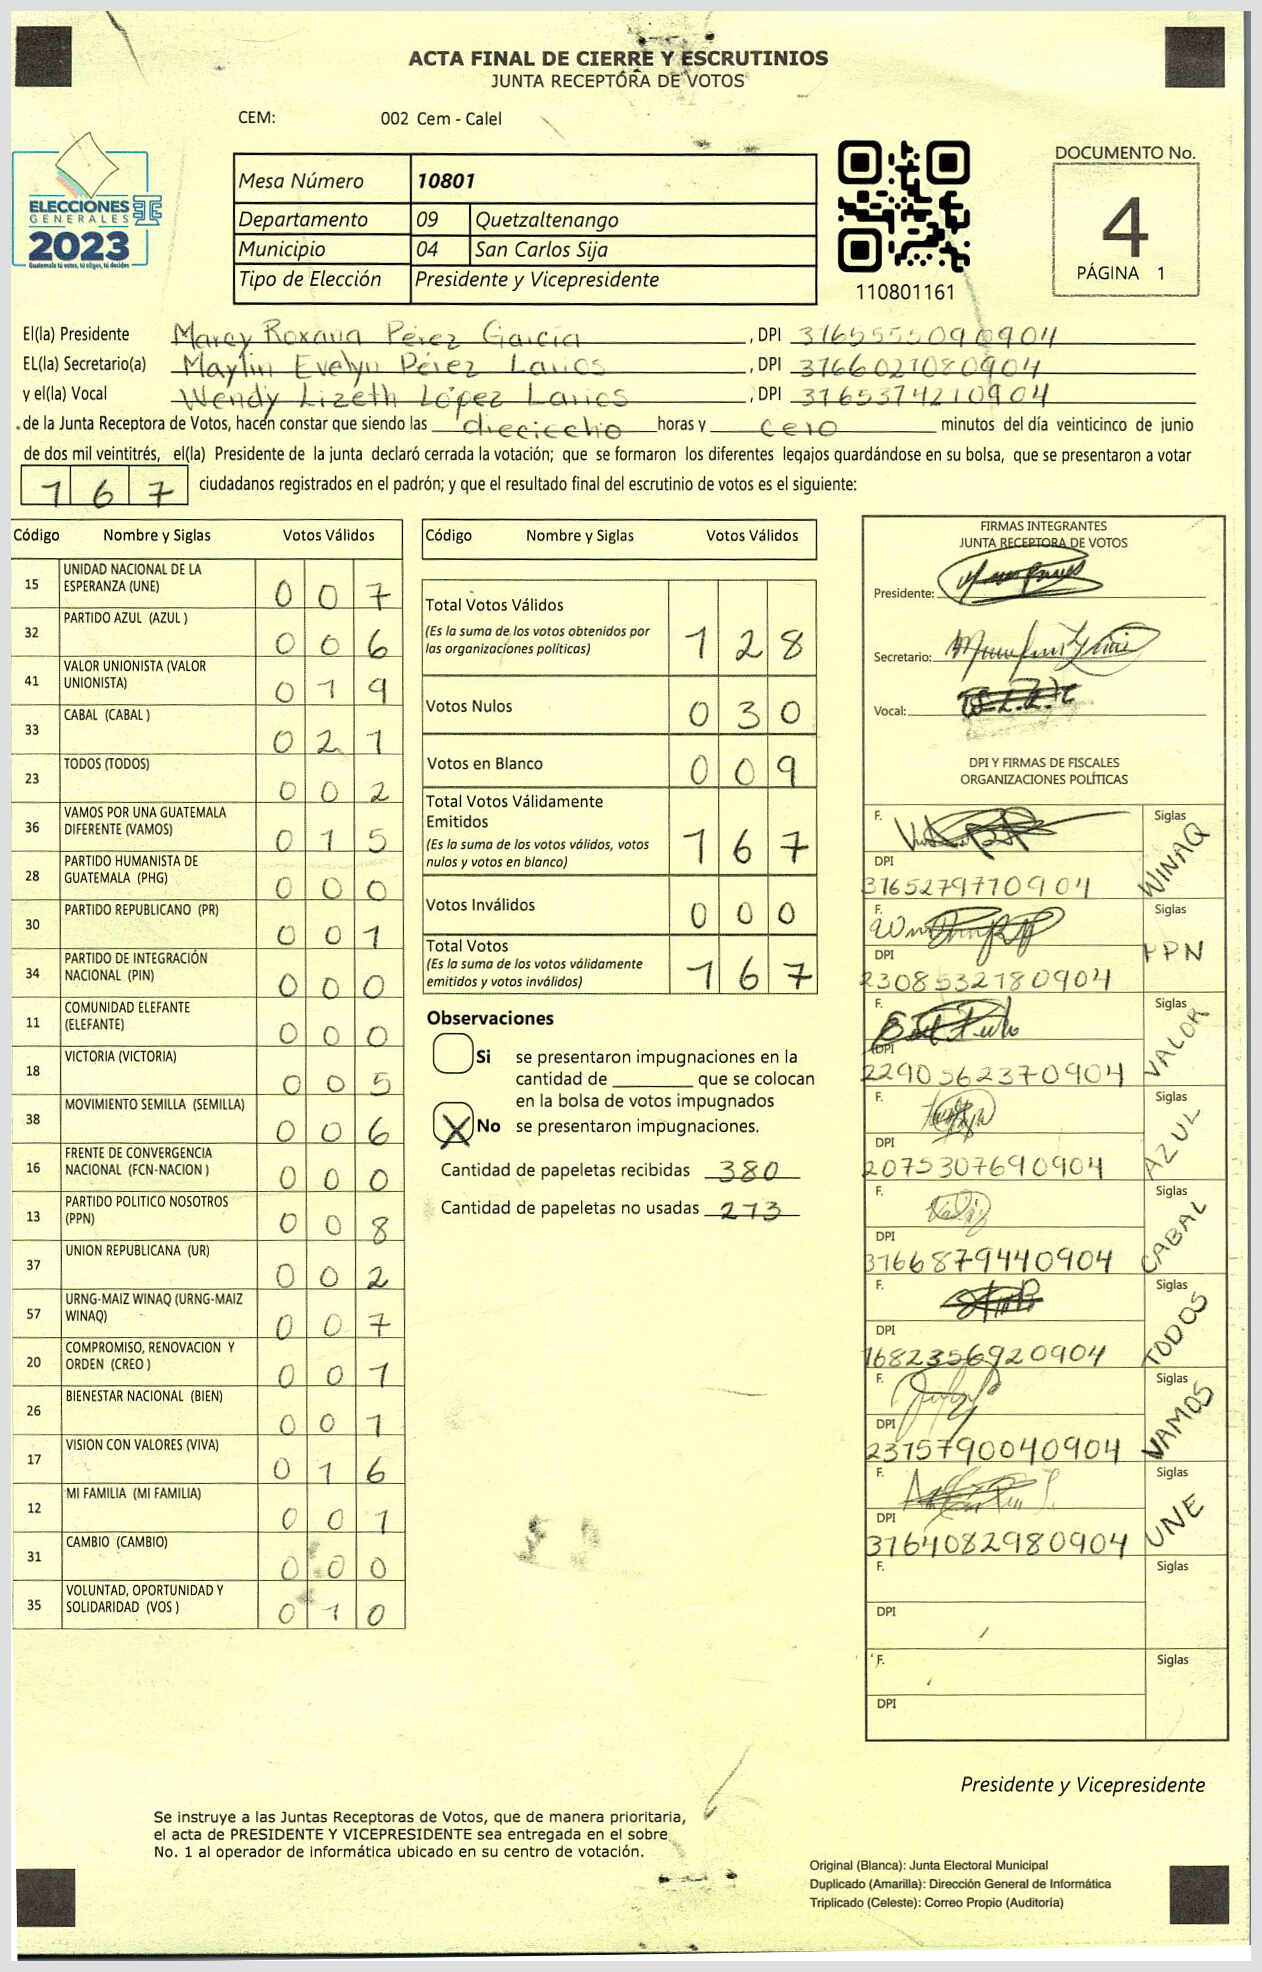 ACTA FINAL DE CIERRE Y ESCRUTINIOS
JUNTA RECEPTORA DE VOTOS
CEM: 002 Cem - Calel
ELECCIONES
GENERALES
2023
Guatemala tú votas, tú eliges, tú decides
Mesa Número 10801
Departamento 09 Quetzaltenango
Municipio 04 San Carlos Sija
Tipo de Elección Presidente y Vicepresidente
110801161
DOCUMENTO No.
4
PÁGINA 1
El(la) Presidente Marcy Roxana Pérez García, DPI 3165555090904
EL(la) Secretario(a) Maylin Evelyn Pérez Larios, DPI 3166021080904
y el(la) Vocal Wendy Lizeth López Larios, DPI 3165374210904
de la Junta Receptora de Votos, hacen constar que siendo las dieciocho horas y cero minutos del día veinticinco de junio
de dos mil veintitrés, el(la) Presidente de la junta declaró cerrada la votación; que se formaron los diferentes legajos guardándose en su bolsa, que se presentaron a votar
167 ciudadanos registrados en el padrón; y que el resultado final del escrutinio de votos es el siguiente:
Código Nombre y Siglas Votos Válidos
15 UNIDAD NACIONAL DE LA ESPERANZA (UNE) 007
32 PARTIDO AZUL (AZUL ) 006
41 VALOR UNIONISTA (VALOR UNIONISTA) 019
33 CABAL (CABAL ) 021
23 TODOS (TODOS) 002
36 VAMOS POR UNA GUATEMALA DIFERENTE (VAMOS) 015
28 PARTIDO HUMANISTA DE GUATEMALA (PHG) 000
30 PARTIDO REPUBLICANO (PR) 001
34 PARTIDO DE INTEGRACIÓN NACIONAL (PIN) 000
11 COMUNIDAD ELEFANTE (ELEFANTE) 000
18 VICTORIA (VICTORIA) 005
38 MOVIMIENTO SEMILLA (SEMILLA) 006
16 FRENTE DE CONVERGENCIA NACIONAL (FCN-NACION ) 000
13 PARTIDO POLITICO NOSOTROS (PPN) 008
37 UNION REPUBLICANA (UR) 002
57 URNG-MAIZ WINAQ (URNG-MAIZ WINAQ) 007
20 COMPROMISO, RENOVACION Y ORDEN (CREO ) 001
26 BIENESTAR NACIONAL (BIEN) 001
17 VISION CON VALORES (VIVA) 016
12 MI FAMILIA (MI FAMILIA) 001
31 CAMBIO (CAMBIO) 000
35 VOLUNTAD, OPORTUNIDAD Y SOLIDARIDAD (VOS ) 010
Código Nombre y Siglas Votos Válidos
Total Votos Válidos
(Es la suma de los votos obtenidos por las organizaciones políticas) 128
Votos Nulos 030
Votos en Blanco 009
Total Votos Válidamente Emitidos
(Es la suma de los votos válidos, votos nulos y votos en blanco) 167
Votos Inválidos 000
Total Votos
(Es la suma de los votos válidamente emitidos y votos inválidos) 167
Observaciones
Si se presentaron impugnaciones en la
cantidad de ________ que se colocan
en la bolsa de votos impugnados
X No se presentaron impugnaciones.
Cantidad de papeletas recibidas 380
Cantidad de papeletas no usadas 213
FIRMAS INTEGRANTES
JUNTA RECEPTORA DE VOTOS
Presidente:
Secretario:
Vocal:
DPI Y FIRMAS DE FISCALES
ORGANIZACIONES POLÍTICAS
F. Siglas WINAQ
DPI 3165279770904
F. Siglas PPN
DPI 2308532180904
F. Siglas VALOR
DPI 2290562370904
F. Siglas AZUL
DPI 2075307690904
F. Siglas CABAL
DPI 3166879440904
F. Siglas TODOS
DPI 1682356920904
F. Siglas VAMOS
DPI 2315790040904
F. Siglas UNE
DPI 3164082980904
F. Siglas
DPI
F. Siglas
DPI
Presidente y Vicepresidente
Se instruye a las Juntas Receptoras de Votos, que de manera prioritaria,
el acta de PRESIDENTE Y VICEPRESIDENTE sea entregada en el sobre
No. 1 al operador de informática ubicado en su centro de votación.
Original (Blanca): Junta Electoral Municipal
Duplicado (Amarilla): Dirección General de Informática
Triplicado (Celeste): Correo Propio (Auditoría)